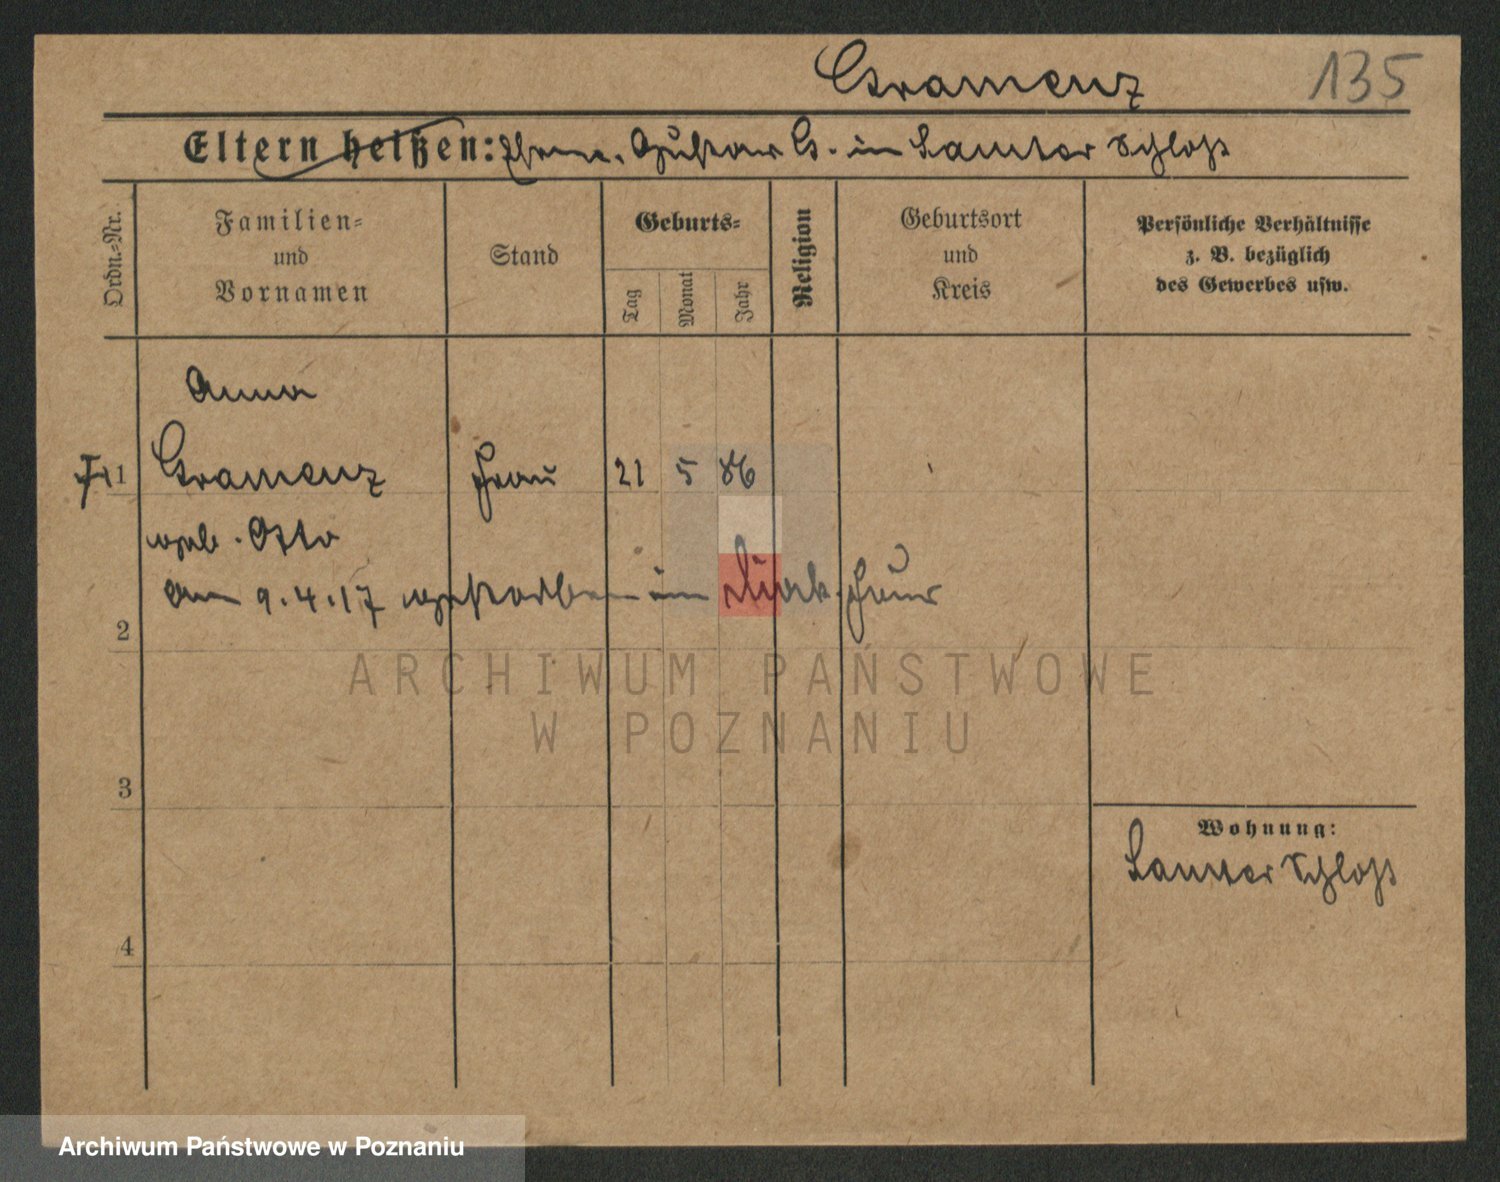 Gramenz 135
Eltern heißen: Ehem. Gustav G. in Samter Schloß
Ordn.-Nr.
Familien-
und
Vornamen
Stand
Geburts-
Tag
Monat
Jahr
Religion
Geburtsort
und
Kreis
Persönliche Verhältnisse
z. B. bezüglich
des Gewerbes usw.
Anna
1 Gramenz Frau 21 5 86
geb. Otto
am 9.4.17 gestorben im
2
ARCHIWUM PAŃSTWOWE
W POZNANIU
3
Wohnung:
Samter Schloß
4
Archiwum Państwowe w Poznaniu